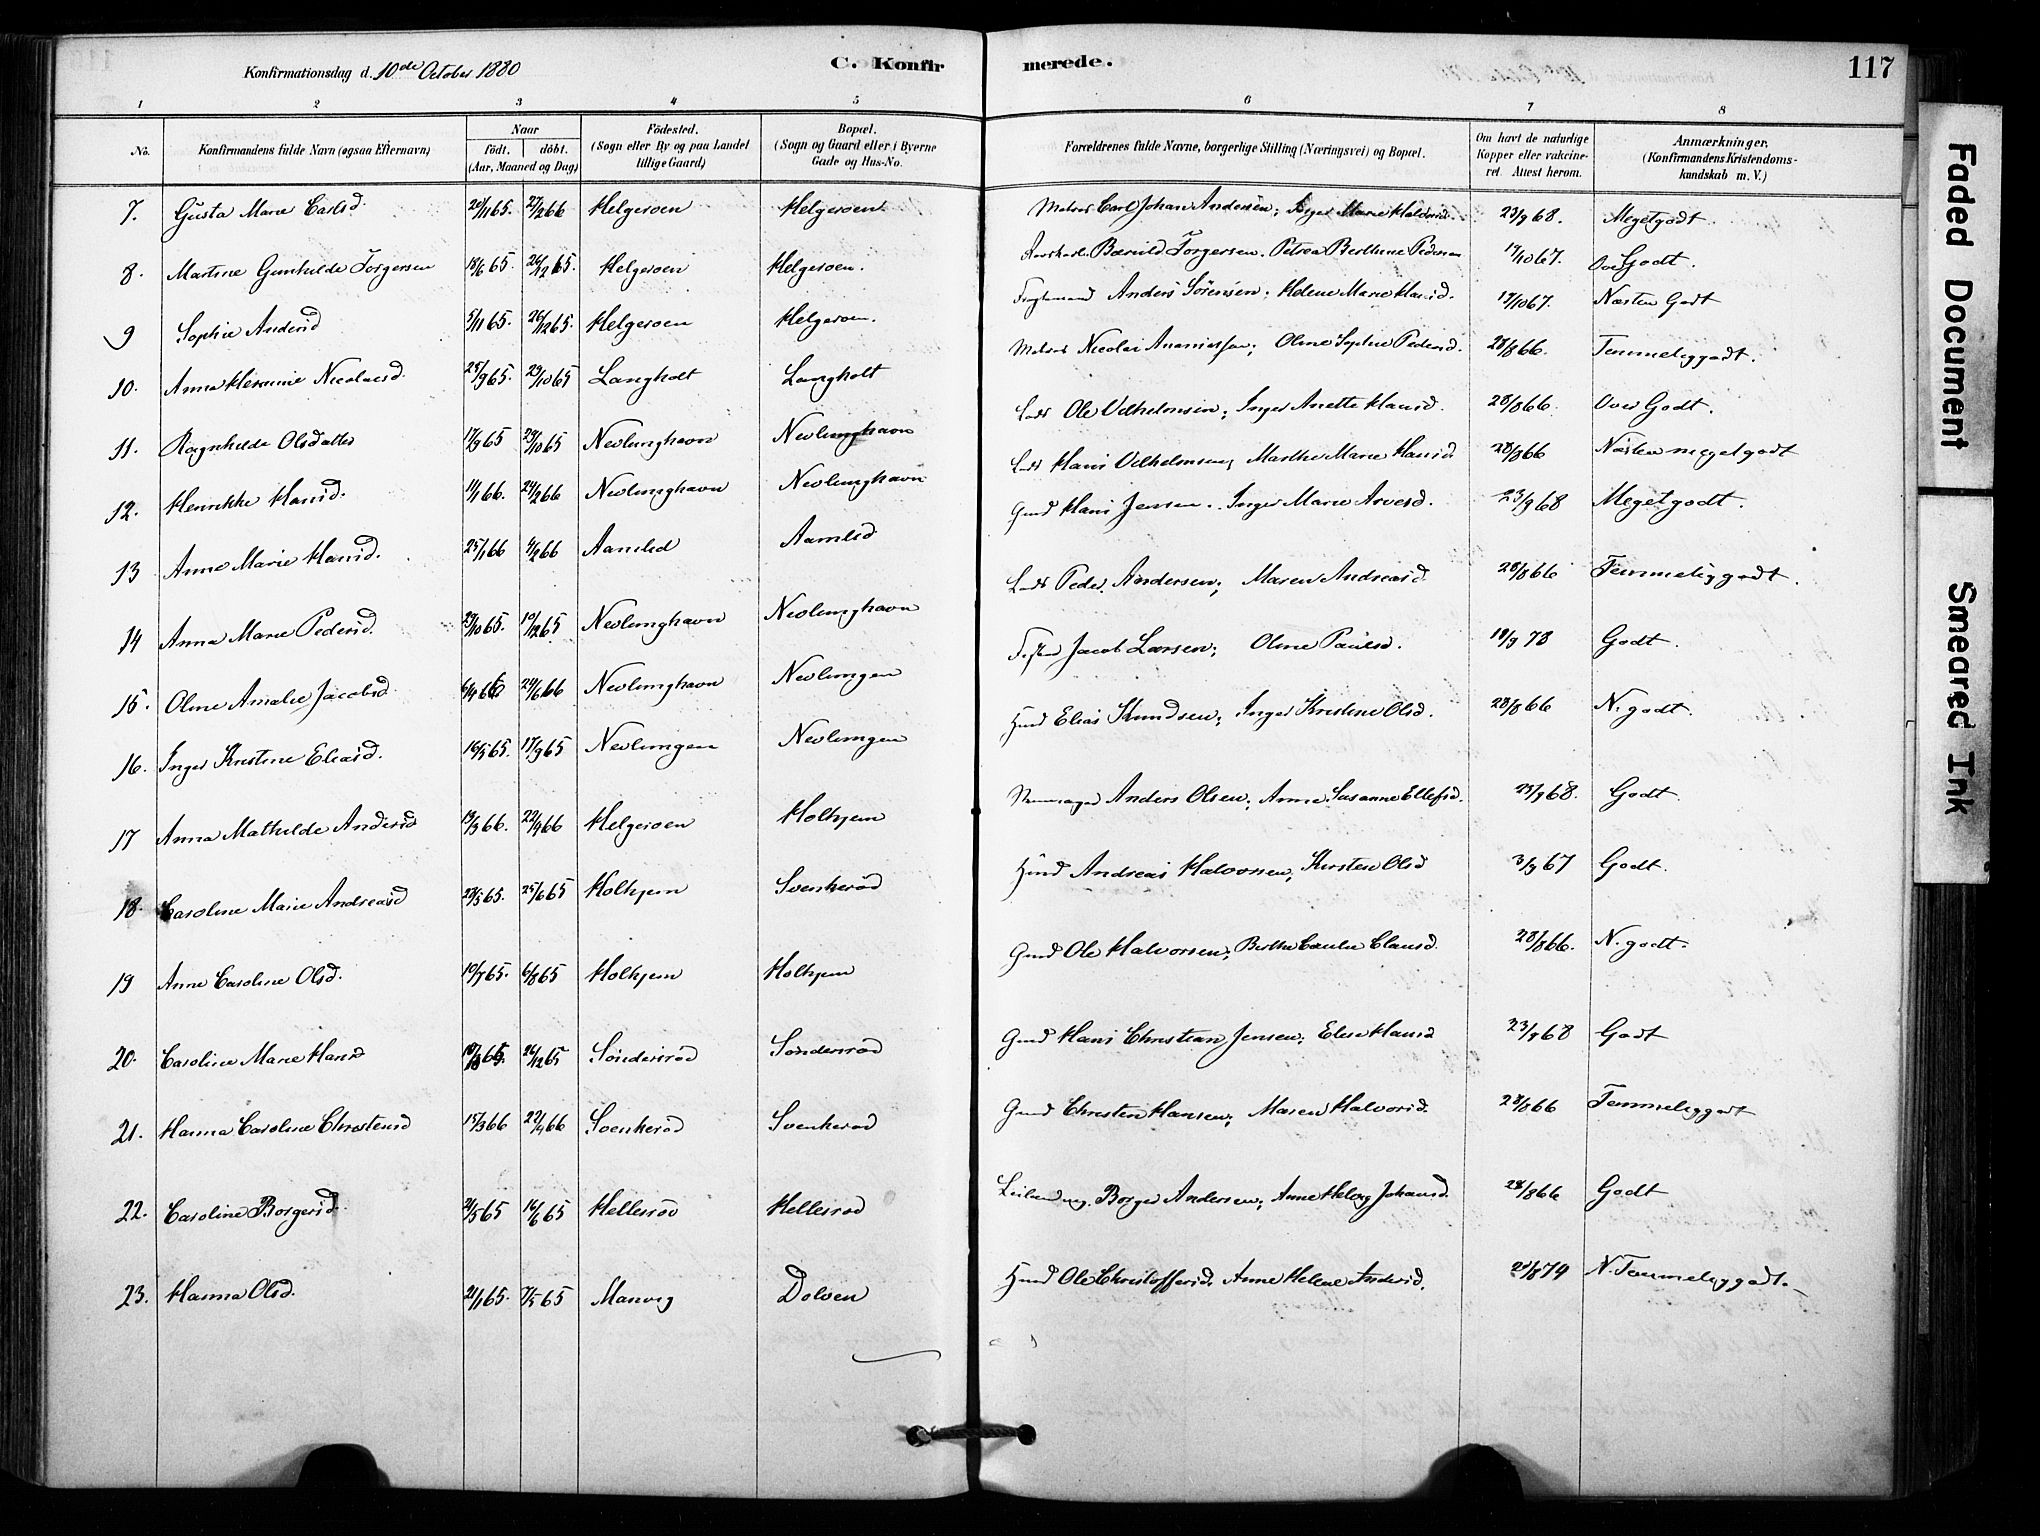 Konfirmationsdag d. 10de October 1880
C. Konfirmerede.
117
1 2 3 4 5 6 7 8
No.
Konfirmandens fulde Navn (ogsaa Efternavn)
Naar
födt. döbt.
(Aar, Maaned og Dag)
Födested.
(Sogn eller By og paa Landet tillige Gaard)
Bopæl.
(Sogn og Gaard eller i Byerne Gade og Hus-No.
Forældrenes fulde Navne, borgerlige Stilling (Næringsvei) og Bopæl.
Om havt de naturlige Kopper eller vakcineret. Attest herom.
Anmærkninger.
(Konfirmandens Kristendomskundskab m. V.)
7. Gusta Marie Carlsd. 20/11 65. 27/2 66 Helgeroen Helgeroen Matros Carl Johan Andersen; Inger Marie Halvorsd. 23/9 68. Meget godt.
8. Martine Gunhilde Torgersen 18/6 65. 26/12 65. Helgeroen Helgeroen. Torgersen. Petrea Berthine Pedersen 17/10 67. Over Godt.
9 Sophie Andersd 5/11 65. 26/12 65. Helgeroen Helgeroen. Anders Sörensen; Helene Marie Hansd. 17/10 67. Næsten Godt
10. Anna Hermine Nicolaisd. 25/9 65. 29/10 65 Langholt Langholt Matros Nicolai Ananiassen; Oline Sophie Pedersd. 28/8 66. Temmelig godt.
11. Ragnhilde Olsdatter 17/9 65 29/10 65 Nevlunghavn Nevlunghavn Lods Ole Vilhelmsen; Inger Anette Hansd. 28/8 66. Over Godt.
12. Henrikke Hansd. 11/1 66. 24/2 66 Nevlunghavn Nevlunghavn Lods Hans Vilhelmsen; Marthe Marie Hansd. 28/8 66 Næsten meget godt
13 Anne Marie Hansd. 25/1 66 4/2 66 Aamlid Aamlid Gmd Hans Jensen. Inger Marie Arvesd. 23/9 68 Meget godt.
14 Anna Marie Pedersd. 29/10 65. 10/12 65 Nevlunghavn Nevlunghavn Lods Peder Andersen; Maren Andreasd. 28/8 66 Temmelig godt.
15. Oline Amalie Jacobsd. 29/6 66 Nevlunghavn Nevlungen Jacob Larsen; Oline Paulsd. 18/9 78 Godt.
16. Inger Kristine Eliasd. 16/5 65. 17/9 65 Nevlungen Nevlungen Hmd Elias Knudsen; Inger Kristine Olsd. 28/8 66 N. godt.
17 Anna Mathilde Andersd 13/3 66. 22/4 66 Helgeroen Holhjem Anders Olsen; Anne Susanne Ellefsd. 23/9 68. Godt.
18. Caroline Marie Andreasd 29/5 65. 25/6 65 Holhjem Svenkeröd Hmd Andreas Halvorsen; Kirsten Olsd 3/9 67 Godt.
19 Anne Caroline Olsd. 10/7 65. 6/8 65 Holhjem Holhjem Gmd Ole Halvorsen; Berthe Clausd. 28/8 66. N. godt.
20. Caroline Marie Hansd 26/12 65 Sönderröd Sönderröd Gmd Hans Christian Jensen; Elise Hansd 23/9 68 Godt
21. Hanna Caroline Christensd 15/3 66 22/4 66 Svenkeröd Svenkeröd Gmd Christen Hansen; Maren Halvorsd. 28/8 66 Temmelig godt
22. Caroline Borgersd. 2/5 65 16/6 65 Helleröd Helleröd Borger Andersen; Anne Helvig Johansd. 28/8 66 Godt
23. Hanna Olsd. 21/1 65. 7/5 65 Manvig Dolven Hmd Ole Christoffersd. Anne Helene Andersd. 21/8 79 N. Temmelig godt.
Faded Document
Smeared Ink